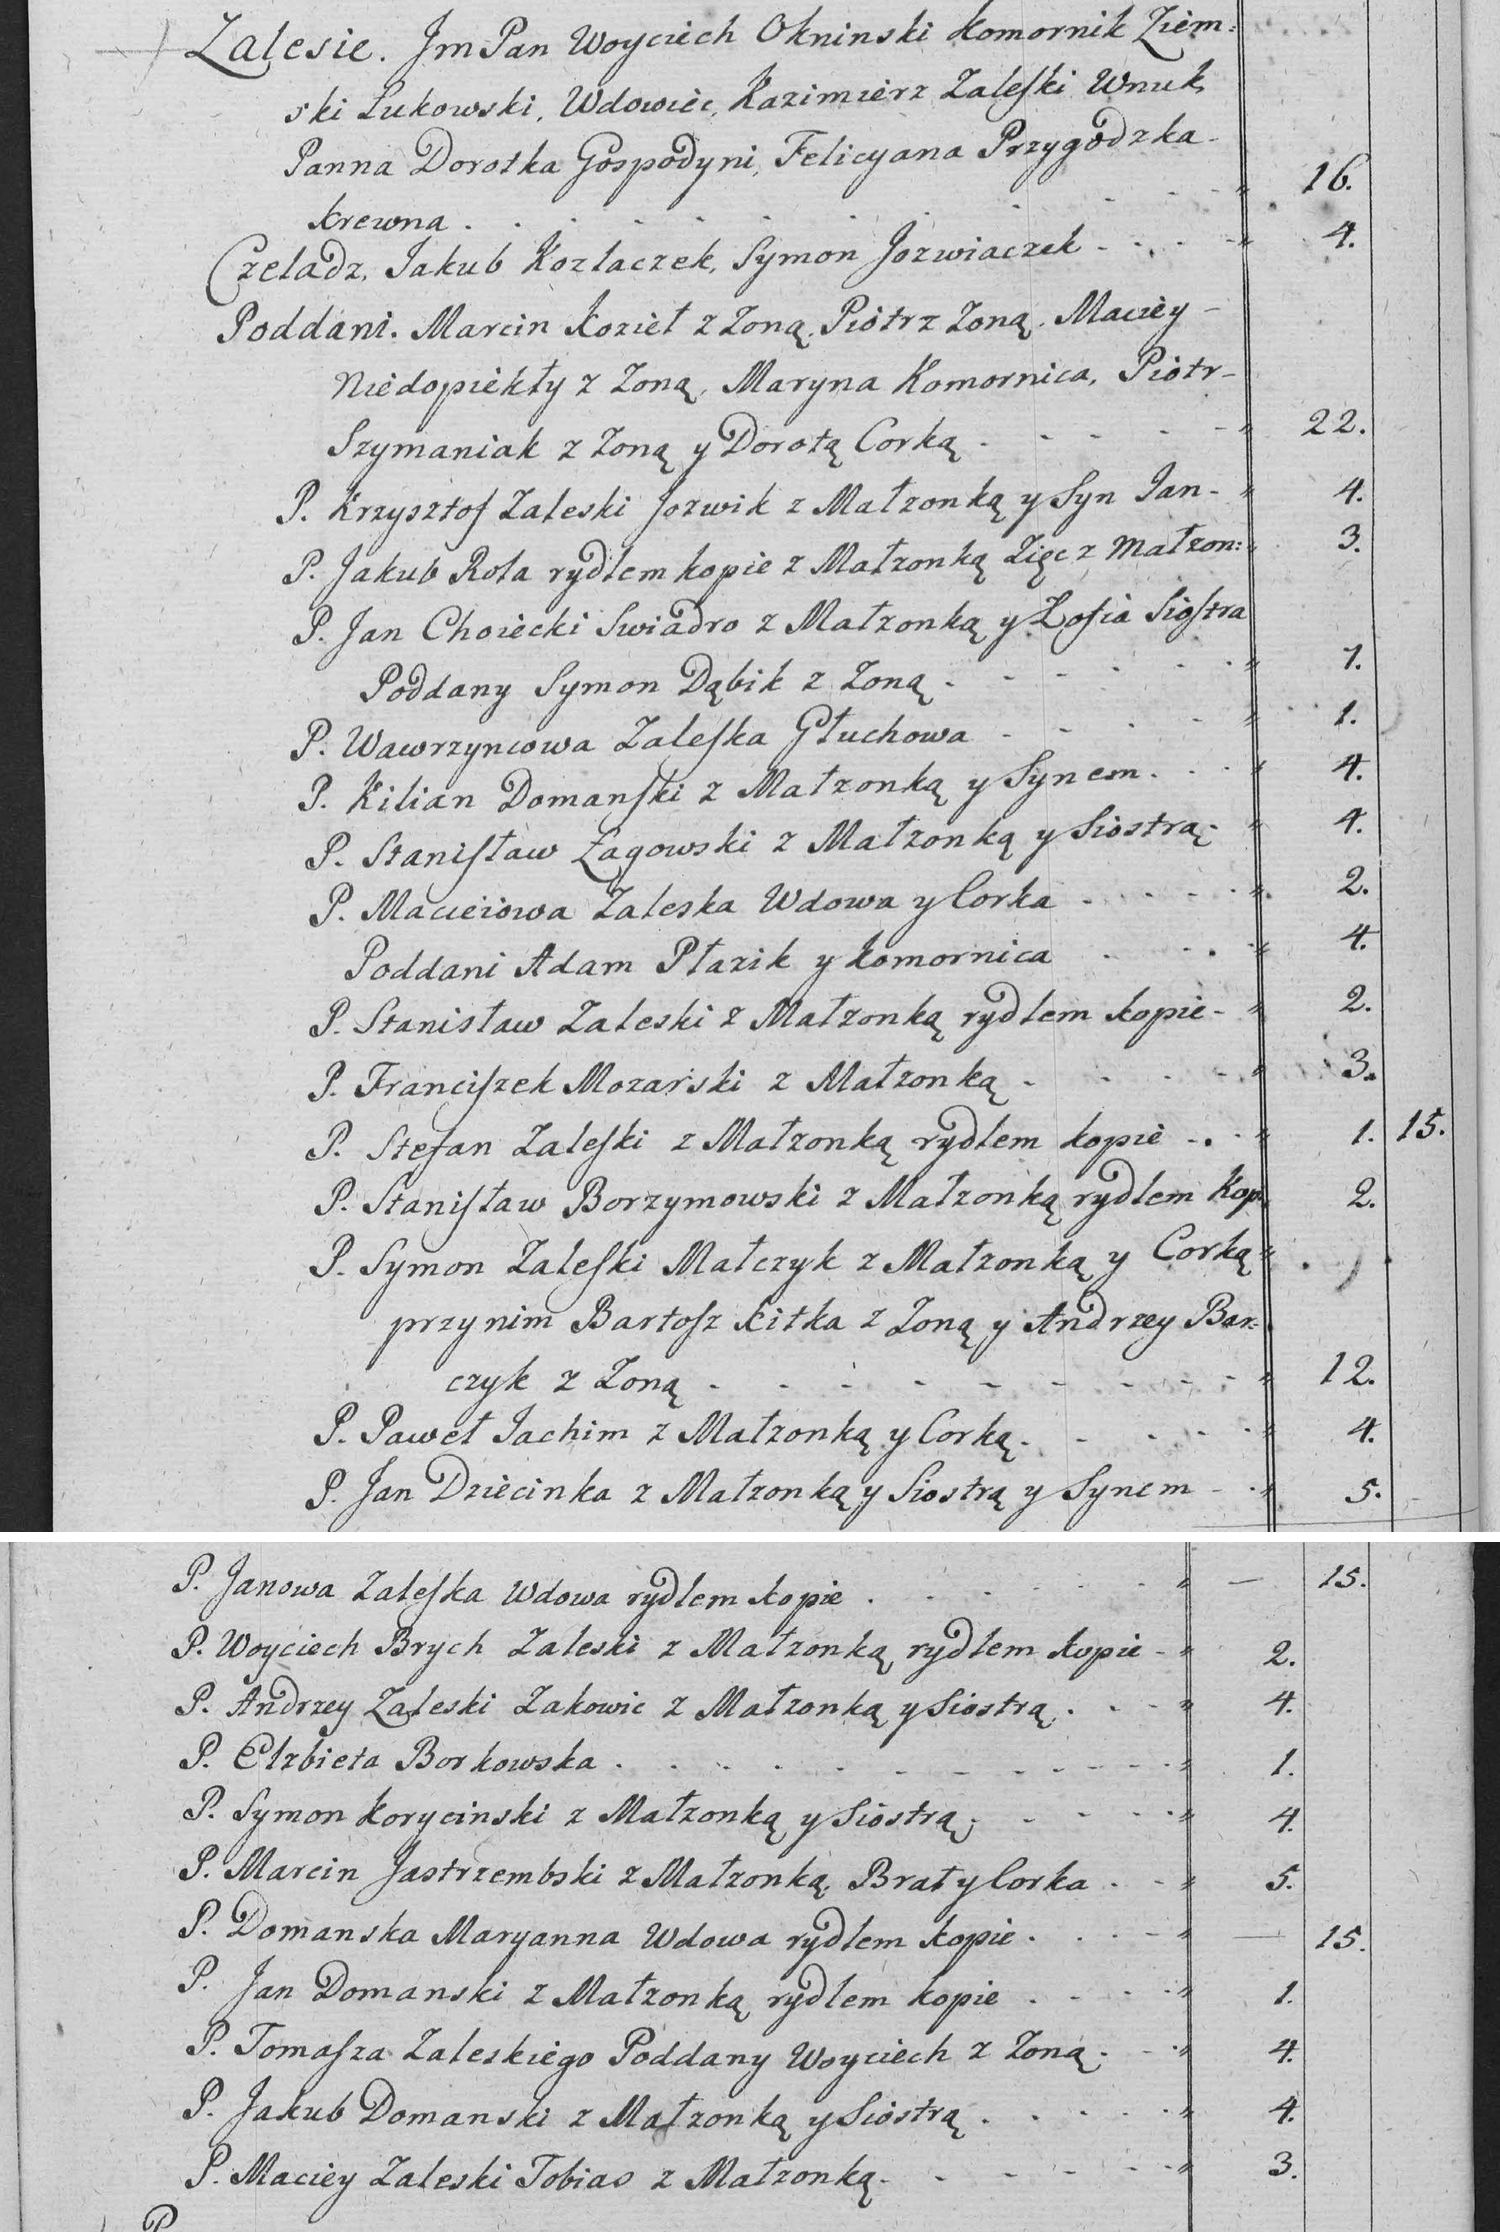 Zalesie. Jm Pan Woyciech Okninski Komornik Ziem:
ski Łukowski, Wdowiec, Kazimierz Zaleski Wnuk,
Panna Dorotka Gospodyni, Felicyana Przygodzka -
krewna . . . . . . . . . . " 16.
Czeladz, Jakub Kozłaczek, Symon Jozwiaczek - . . - " 4.
Poddani. Marcin Kozieł z Zoną, Piotr z Zoną, Maciey -
Niedopiekły z Zoną, Maryna Komornica, Piotr -
Szymaniak z Zoną y Dorotą Corką . - - - - " 22.
P. Krzysztof Zaleski Jozwik z Małzonką y Syn Jan - " 4.
P. Jakub Rola rydlem kopie z Małzonką Zięc z Małzon: " 3.
P. Jan Choiecki Swiadro z Małzonką y Zofia Siostra
Poddany Symon Dąbik z Zoną . - - - - - " 7.
P. Wawrzyncowa Zaleska Głuchowa - - . - " 1.
P. Kilian Domanski z Małzonką y Synem . . . " 4.
P. Stanisław Łagowski z Małzonką y Siostrą . " 4.
P. Macieiowa Zaleska Wdowa y Corka . . - . - " 2.
Poddani Adam Płazik y Komornica . - . " 4.
P. Stanisław Zaleski z Małzonką rydlem kopie - " 2.
P. Franciszek Mozarski z Małzonką . . - - " 3.
P. Stefan Zaleski z Małzonką rydlem kopie - . - " 1. 15.
P. Stanisław Borzymowski z Małzonką rydlem Kop. 2.
P. Symon Zaleski Małczyk z Małzonką y Corką "
przy nim Bartosz Kitka z Zoną y Andrzey Bar:
czyk z Zoną - - - - - - - - - " 12.
P. Paweł Jachim z Małzonką y Corką . - - - - " 4.
P. Jan Dziecinka z Małzonką y Siostrą y Synem - . " 5.
P. Janowa Zaleska Wdowa rydlem kopie . . . - - - " — 15.
P. Woyciech Brych Zaleski z Małzonką rydlem kopie - " 2.
P. Andrzey Zaleski Zakowic z Małzonką y Siostrą . . - " 4.
P. Elzbieta Borkowska . . . . . - - - - - " 1.
P. Symon Koryciński z Małzonką y Siostrą . - - - " 4.
P. Marcin Jastrzembski z Małzonką, Brat y Corka . - " 5.
P. Domanska Maryanna Wdowa rydlem kopie . . . - " — 15.
P. Jan Domanski z Małzonką rydlem kopie . - - - " 1.
P. Tomasza Zaleskiego Poddany Woyciech z Zoną . - " 4.
P. Jakub Domanski z Małzonką y Siostrą . . - - - " 4.
P. Maciey Zaleski Tobias z Małzonką . - - - - - " 3.